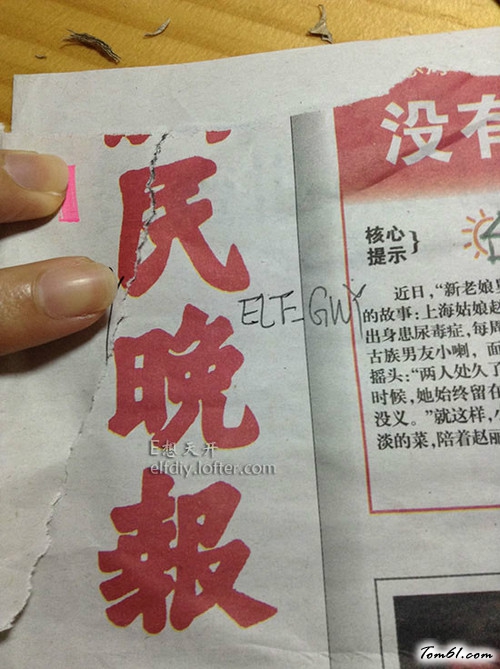 民
晚
報
ELF-GWY
没有
核心
提示}
近日，“新老娘
的故事：上海姑娘赵
出身患尿毒症，每周
古族男友小喇，面
摇头：“两人处久了
时候，她始终留在
没义。”就这样，
淡的菜，陪着赵丽
E想天开
elfdiy.lofter.com
Tom61.com